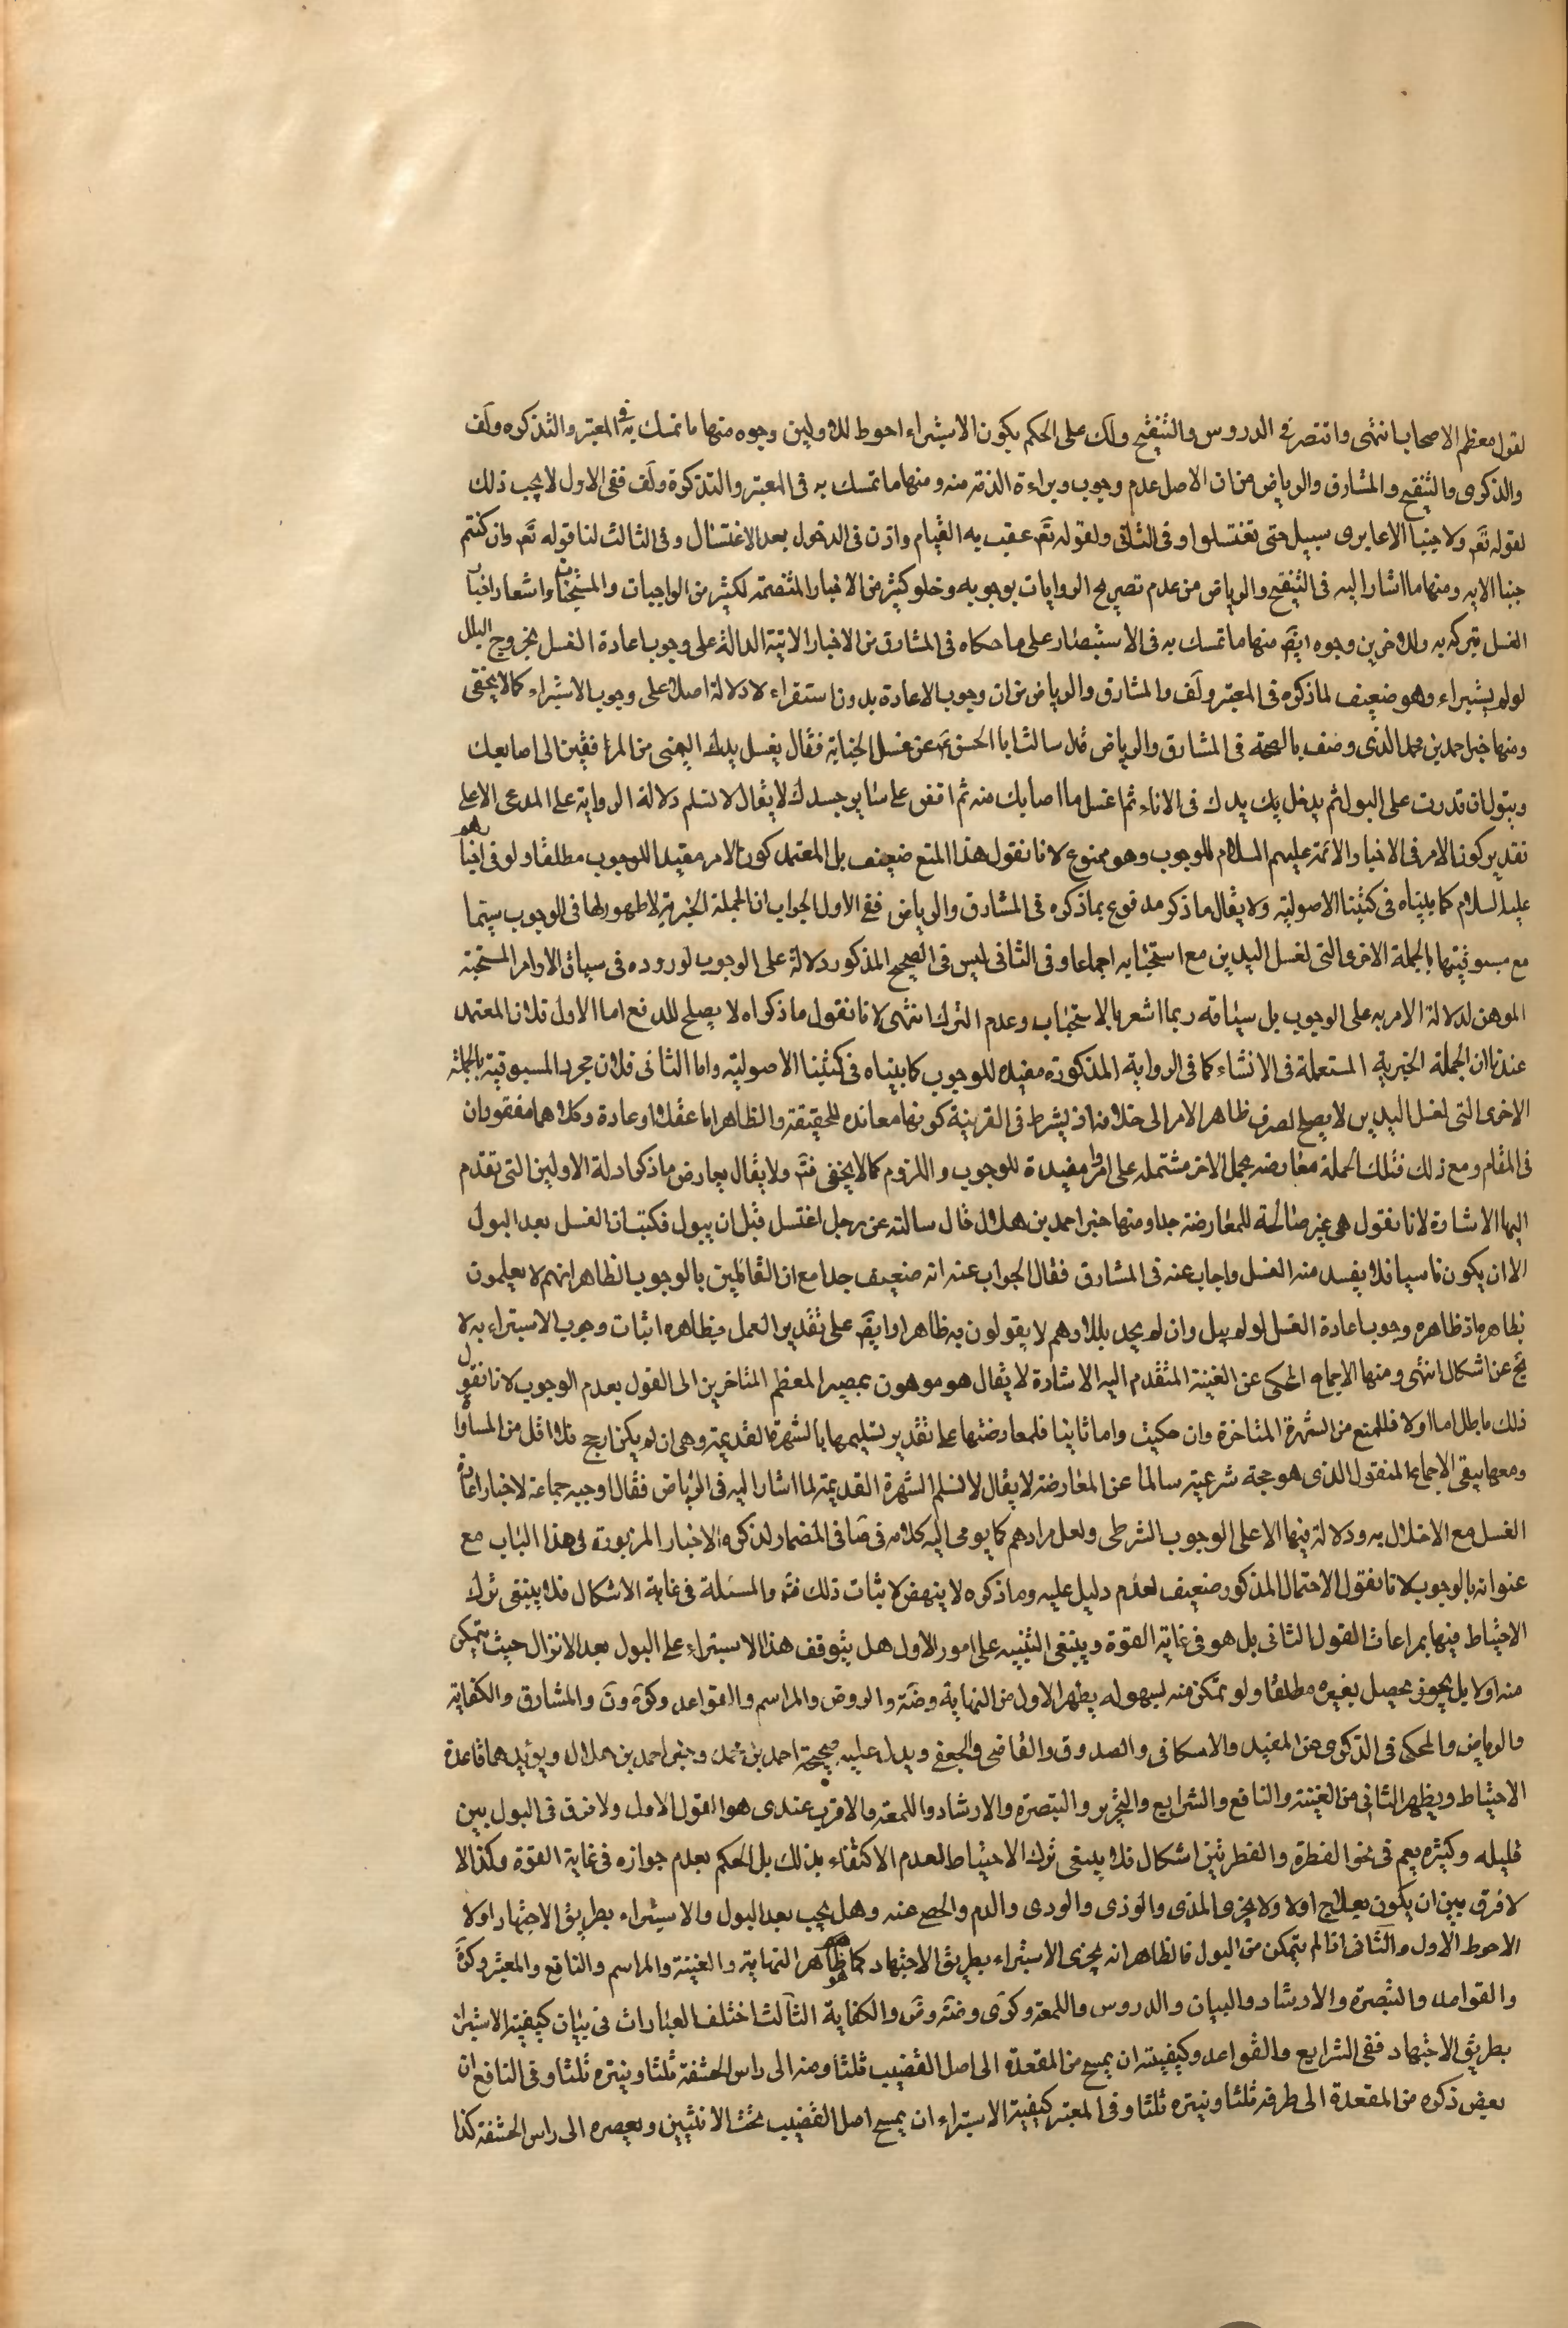 لقول معظم الاصحاب انتهى واقتصر فى الدروس والتنقيح ولك على الحكم بكون الاستبراء احوط للاولين وجوه منها ما تمسك به فى المعتبر والتذكره ولف
والذكرى والتنقيح والمشارق والرياض من ان الاصل عدم وجوب وبراءة الذمة منه ومنها ما تمسك به فى المعتبر والتذكرة ولف ففى الاول لا يجب ذلك
لقوله تع ولا جنبا الا عابرى سبيل حتى تغتسلوا وفى الثانى ولقوله تع عقيب به القيام واذن فى الدخول بعد الاغتسال وفى الثالث لنا قوله تع وان كنتم
جنبا الايه ومنها ما اشار اليه فى التنقيح والرياض من عدم تصريح الروايات بوجوبه وخلو كثير من الاخبار المتضمنة لكثير من الواجبات والمستحبات واشعار اخبار
الغسل بتركه به وللاخرين وجوه ايض منها ما تمسك به فى الاستبصار على ما حكاه فى المشارق من الاخبار الاتية الدالة على وجوب اعادة الغسل بخروج البلل
لولم يستبراء وهو ضعيف لما ذكره فى المعتبر ولف والمشارق والرياض من ان وجوب الاعادة بدون استقراء لا دلالة اصلا على وجوب الاستبراء كما لا يخفى
ومنها خبر احمد بن محمد الذى وصف بالصحة فى المشارق والرياض قال سالت ابا الحسن ع عن غسل الجنابة فقال يغسل يدك اليمنى من المرافقين الى اصابعك
وتبول ان قدرت على البول ثم يدخل يك يدك فى الاناء ثم اغسل ما اصابك منه ثم افض على سائر جسدك لا يقال لا نسلم دلالة الرواية على المدعى الا على
تقدير كون الامر فى الاخبار والائمة عليهم السلام للوجوب وهو ممنوع لانا نقول هذا المنع ضعيف بل المعتمد كون الامر مفيدا للوجوب مطلقا ولو فى اخبارهم
عليه السلام كما بيناه فى كتبنا الاصولية ولا يقال ما ذكر مدفوع بما ذكره فى المشارق والرياض ففى الاول الجواب ان الجملة الخبرية لا ظهور لها فى الوجوب سيما
مع مسبوقيتها بالجملة الاخر والتى لغسل اليدين مع استحبابه اجماعا وفى الثانى ليس فى الصحيح المذكور دلالة على الوجوب لوروده فى سياق الاوامر المستحبة
الموهن لدلالة الامر به على الوجوب بل سياقه ربما اشعر بالاستحباب وعدم الترك انتهى لانا نقول ما ذكراه لا يصلح للدفع اما الاول فلان المعتمد
عندنا ان الجملة الخبرية المستعملة فى الانشاء كما فى الرواية المذكورة مفيده للوجوب كما بيناه فى كتبنا الاصولية واما الثانى فلان مجرد المسبوقية بالجملة
الاخرى التى لغسل اليدين لا يصلح لصرف ظاهر الامر الى خلافه اذ يشترط فى القرينة كونها معانده للحقيقة والظاهر اما عقلا او عادة وكلاهما مفقودان
فى المقام ومع ذلك فتلك الجملة معارضه بجمل الاخر مشتمله على اوامر مفيدة للوجوب واللزوم كما لا يخفى فتم ولا يقال يعارض ما ذكر ادلة الاولين التى تقدم
اليها الاشارة لانا نقول هى غير صالحة للمعارضة جدا ومنها خبر احمد بن هلال قال سالته عن رجل اغتسل قبل ان يبول فكتب ان الغسل بعد البول
الا ان يكون ناسيا فلا يفسد منه الغسل واجاب عنه فى المشارق فقال الجواب عنه انه ضعيف جدا مع ان القائلين بالوجوب الظاهر انهم لا يعلمون
بظاهره اذ ظاهره وجوب اعادة الغسل لولم يبل وان لم يجد بللا وهم لا يقولون به ظاهرا وايض على تقدير العمل بظاهره اثبات وجوب الاستبراء به لا
يخ عن اشكال انتهى ومنها الاجماع المحكى عن الغنية المتقدم اليه الاشارة لا يقال هو موهون بمصير المعظم المتاخرين الى القول بعدم الوجوب لانا نقول
ذلك باطل اما اولا فللمنع من الشهرة المتاخرة وان حكيت واما ثانيا فلمعارضتها على تقدير تسليمها بالشهرة القديمة وهى ان لم يكن ارجح فلا اقل من المساواة
ومعها يبقى الاجماع المنقول الذى هو حجة شرعية سالما عن المعارضة لا يقال لا نسلم الشهرة القديمة لما اشار اليه فى الرياض فقال اوجبه جماعة لاخبار اعادة
الغسل مع الاخلال به ودلالة فيها الا على الوجوب الشرطى ولعل مرادهم كما يومى اليه كلامه فى صافى المضمار لذكره الاخبار المزبورة فى هذا الباب مع
عنوانه بالوجوب لانا نقول الاحتمال المذكور ضعيف لعدم دليل عليه وما ذكره لا ينهض لاثبات ذلك فتم والمسئلة فى غاية الاشكال فلا ينبغى ترك
الاحتياط فيها بمراعات القول الثانى بل هو فى غاية القوة وينبغى التنبيه على امور الاول هل يتوقف هذا الاستبراء على البول بعد الانزال حيث يتمكن
منه او لا بل يجوز يحصل بغيره مطلقا ولو تمكن منه بسهوله يظهر الاول من النهاية وضة والروض والمراسم والقواعد وكرة ون والمشارق والكفاية
والرياض والمحكى فى الذكرى عن المفيد والاسكافى والصدوق والقاضى والجعفى ويدل عليه صحيحة احمد بن محمد وخبر احمد بن هلال ويؤيدهما قاعدة
الاحتياط ويظهر الثانى من الغنية والنافع والشرايع والتحرير والتبصرة والارشاد واللمعة والاقرب عندى هو القول الاول ولا فرق فى البول بين
قليله وكثيره يعم فى نحو القطرة والقطرتين اشكال فلا ينبغى ترك الاحتياط لعدم الاكتفاء بذلك بل الحكم بعدم جوازه فى غاية القوة وكذا لا
لا فرق بين ان يكون بعلاج اولا ولا يجزى المذى والوذى والودى والدم والحصى عنه وهل يجب بعد البول والاستبراء بطريق الاجتهاد اولا
الاحوط الاول والثانى اذا لم يتمكن من البول فالظاهر انه يجزى الاستبراء بطريق الاجتهاد كما هو ظاهر النهاية والغنية والمراسم والنافع والمعتبر وكرة
والقواعد والتبصرة والارشاد والبيان والدروس واللمعة وكرى وضة وض والكفاية الثالث اختلف العبارات فى بيان كيفية الاستبراء
بطريق الاجتهاد ففى الشرايع والقواعد وكيفيته ان يمسح من المقعدة الى اصل القضيب ثلثا ومنه الى راس الحشفة ثلثا وينتره ثلثا وفى النافع ان
يعصر ذكره من المقعدة الى طرفه ثلثا وينتره ثلثا وفى المعتبر كيفية الاستبراء ان يمسح اصل القضيب تحت الانثيين ويعصره الى راس الحشفة كذا